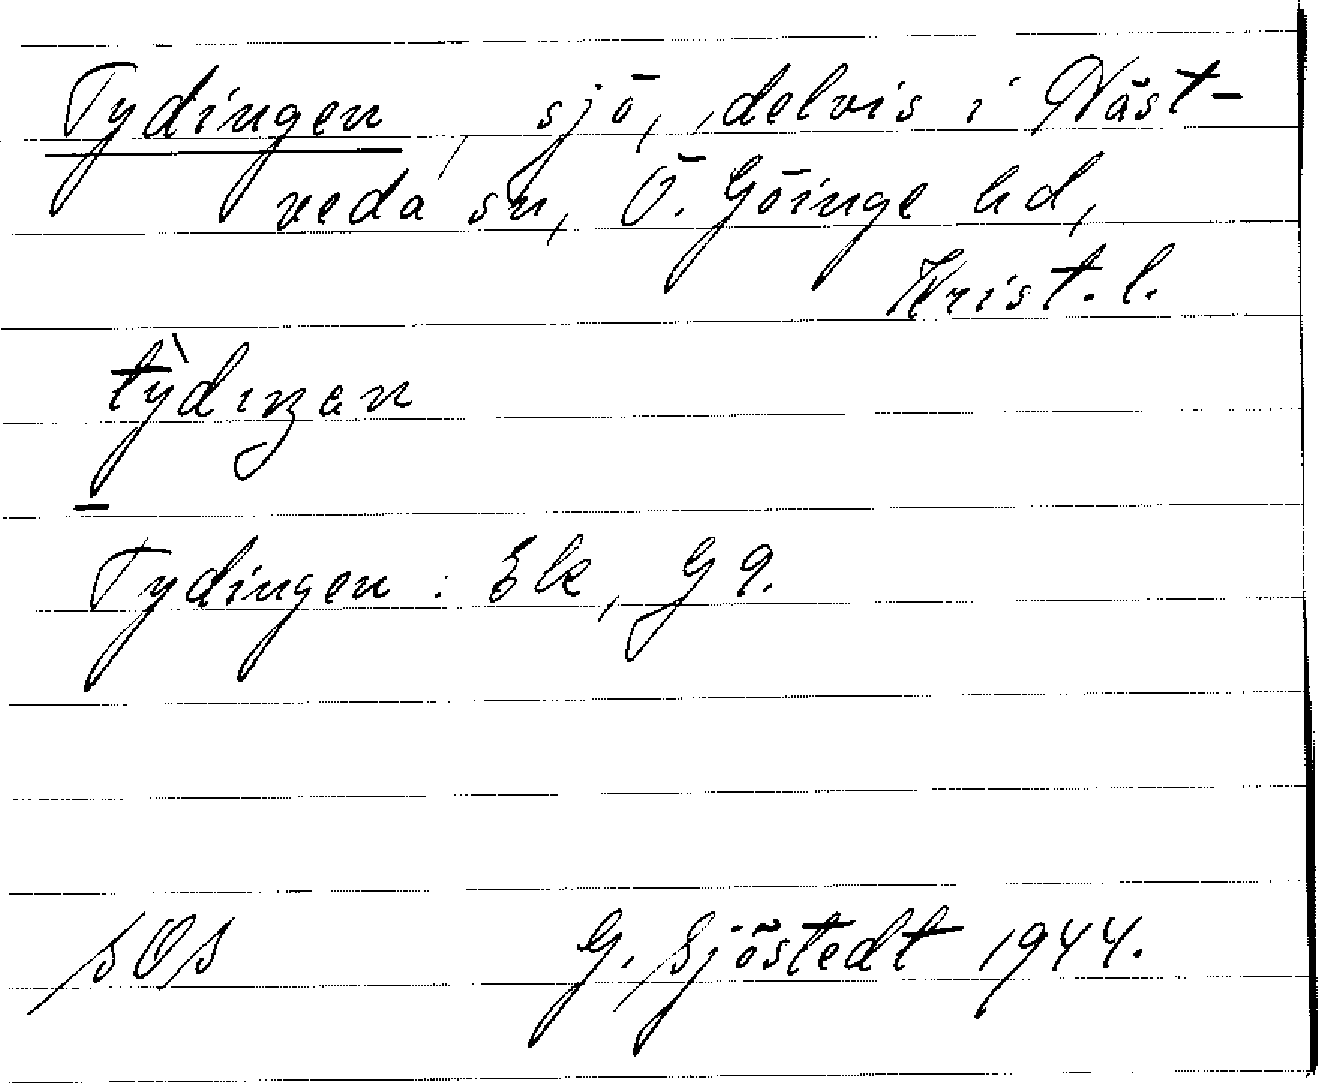 Tydingen, sjö, delvis i Näst-
veda sn, Ö. Göinge hd,
Krist. l.
tỳdıŋan
Tydingen : Ek, G 9.
SOS G. Sjöstedt 1944.